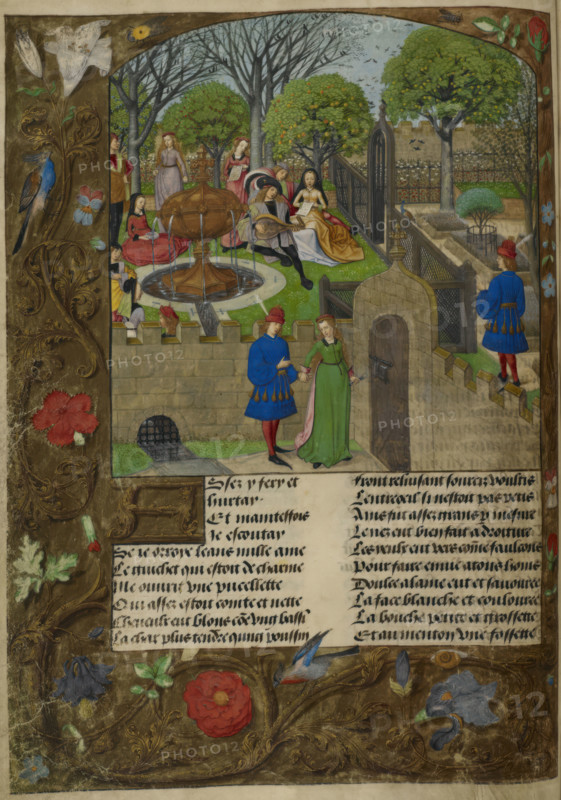 Assez y fery et
hurtay
Et maintesfois
Je escoutay
Se ie orroye leans nulle ame
Le guichet qui estoit de charme
Me ouurit vne pucellette
Qui assez estoit cointe et nette
Cheueulx eut blons cõe vng bassĩ
La char plus tendre qung poussin
Front reluisant sourcilz voultis
Lentreoeil si nestoit pas petis
Ains fut assez grans p mesure
Le nez eut bien fait a droiture
Les yeulx eut vers cõme faulcons
Pour faire enuie a tous hons
Doulce alaine eut et sauouree
La face blanche et coulouree
La bouche petite et grossette
Et au menton vne fossette
PHOTO12